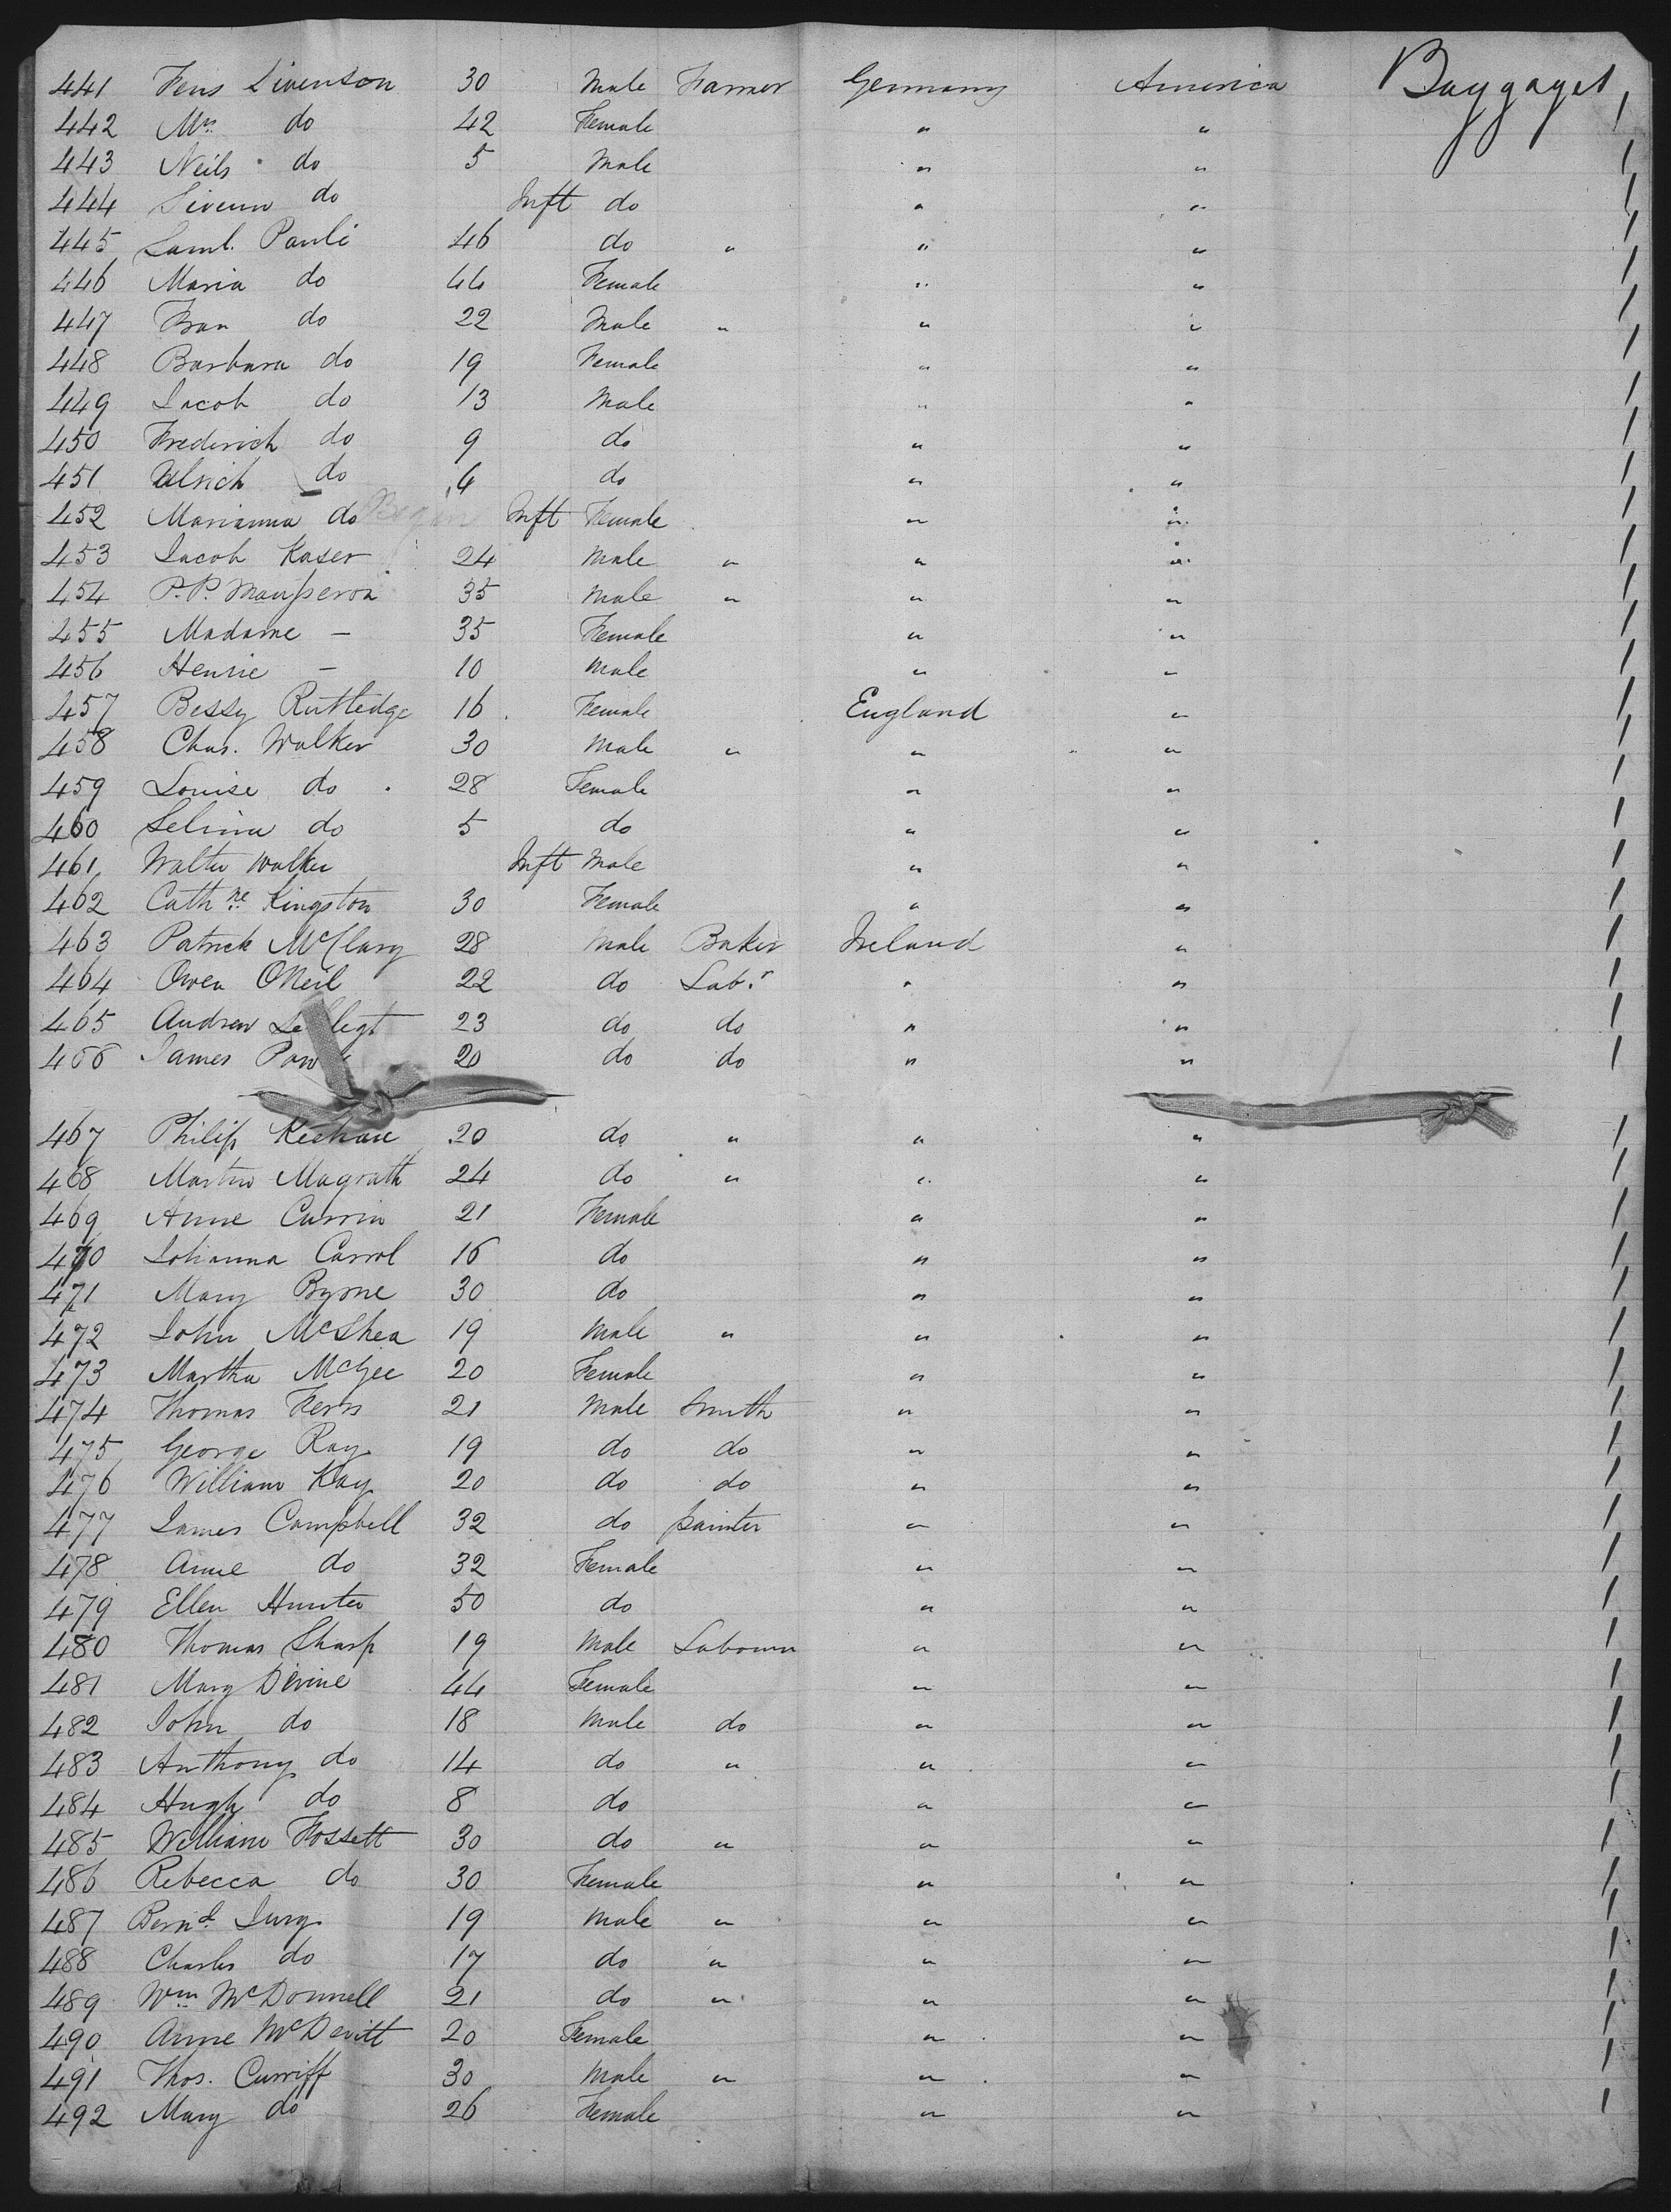 Baggages
441 Fens Sivenson 30 Male Farmer Germany America 1
442 Mrs do 42 Female " " 1
443 Neils do 5 Male " " 1
444 do Inft do " " 1
445 Saml. Pauli 46 do " " " 1
446 Maria do 44 Female " " 1
447 do 22 Male " " " 1
448 Barbara do 19 Female " " 1
449 Jacob do 13 Male " " 1
450 Frederich do 9 do " " 1
451 Ulrich do 4 do " " 1
452 Marianna do Inft Female " " 1
453 Jacob Kaser 24 Male " " " 1
454 P. P. 35 Male " " " 1
455 Madame – 35 Female " " 1
456 Henrie – 10 Male " " 1
457 Bessy Rutledge 16 Female England " 1
458 Chas. Walker 30 Male " " " 1
459 Louise do 28 Female " " 1
460 Selina do 5 do " " 1
461 Walter Walker Inft Male " " 1
462 Cathne Kingston 30 Female " " 1
463 Patrick McClary 28 Male Baker Ireland " 1
464 Owen ONeil 22 do Labr " " 1
465 Andrew 23 do do " " 1
466 James 20 do do " " 1
467 Philip Keehane 20 do " " " 1
468 Martin Magrath 24 do " " " 1
469 Anne Currin 21 Female " " 1
470 Johanna Carrol 16 do " " 1
471 Mary Byrne 30 do " " 1
472 John McShea 19 Male " " " 1
473 Martha McGee 20 Female " " 1
474 Thomas Ferris 21 Male Smith " " 1
475 George Ray 19 do do " " 1
476 William Kay 20 do do " " 1
477 James Campbell 32 do painter " " 1
478 Anne do 32 Female " " 1
479 Ellen Hunter 50 do " " 1
480 Thomas Sharp 19 Male Labourer " " 1
481 Mary Devine 44 Female " " 1
482 John do 18 Male do " " 1
483 Anthony do 14 do " " " 1
484 Hugh do 8 do " " 1
485 William Fossett 30 do " " " 1
486 Rebecca do 30 Female " " 1
487 Bernd 19 Male " " " 1
488 Charles do 17 do " " " 1
489 Wm McDonnell 21 do " " " 1
490 Anne McDevitt 20 Female " " 1
491 Thos. Curriff 30 Male " " " 1
492 Mary do 26 Female " " 1